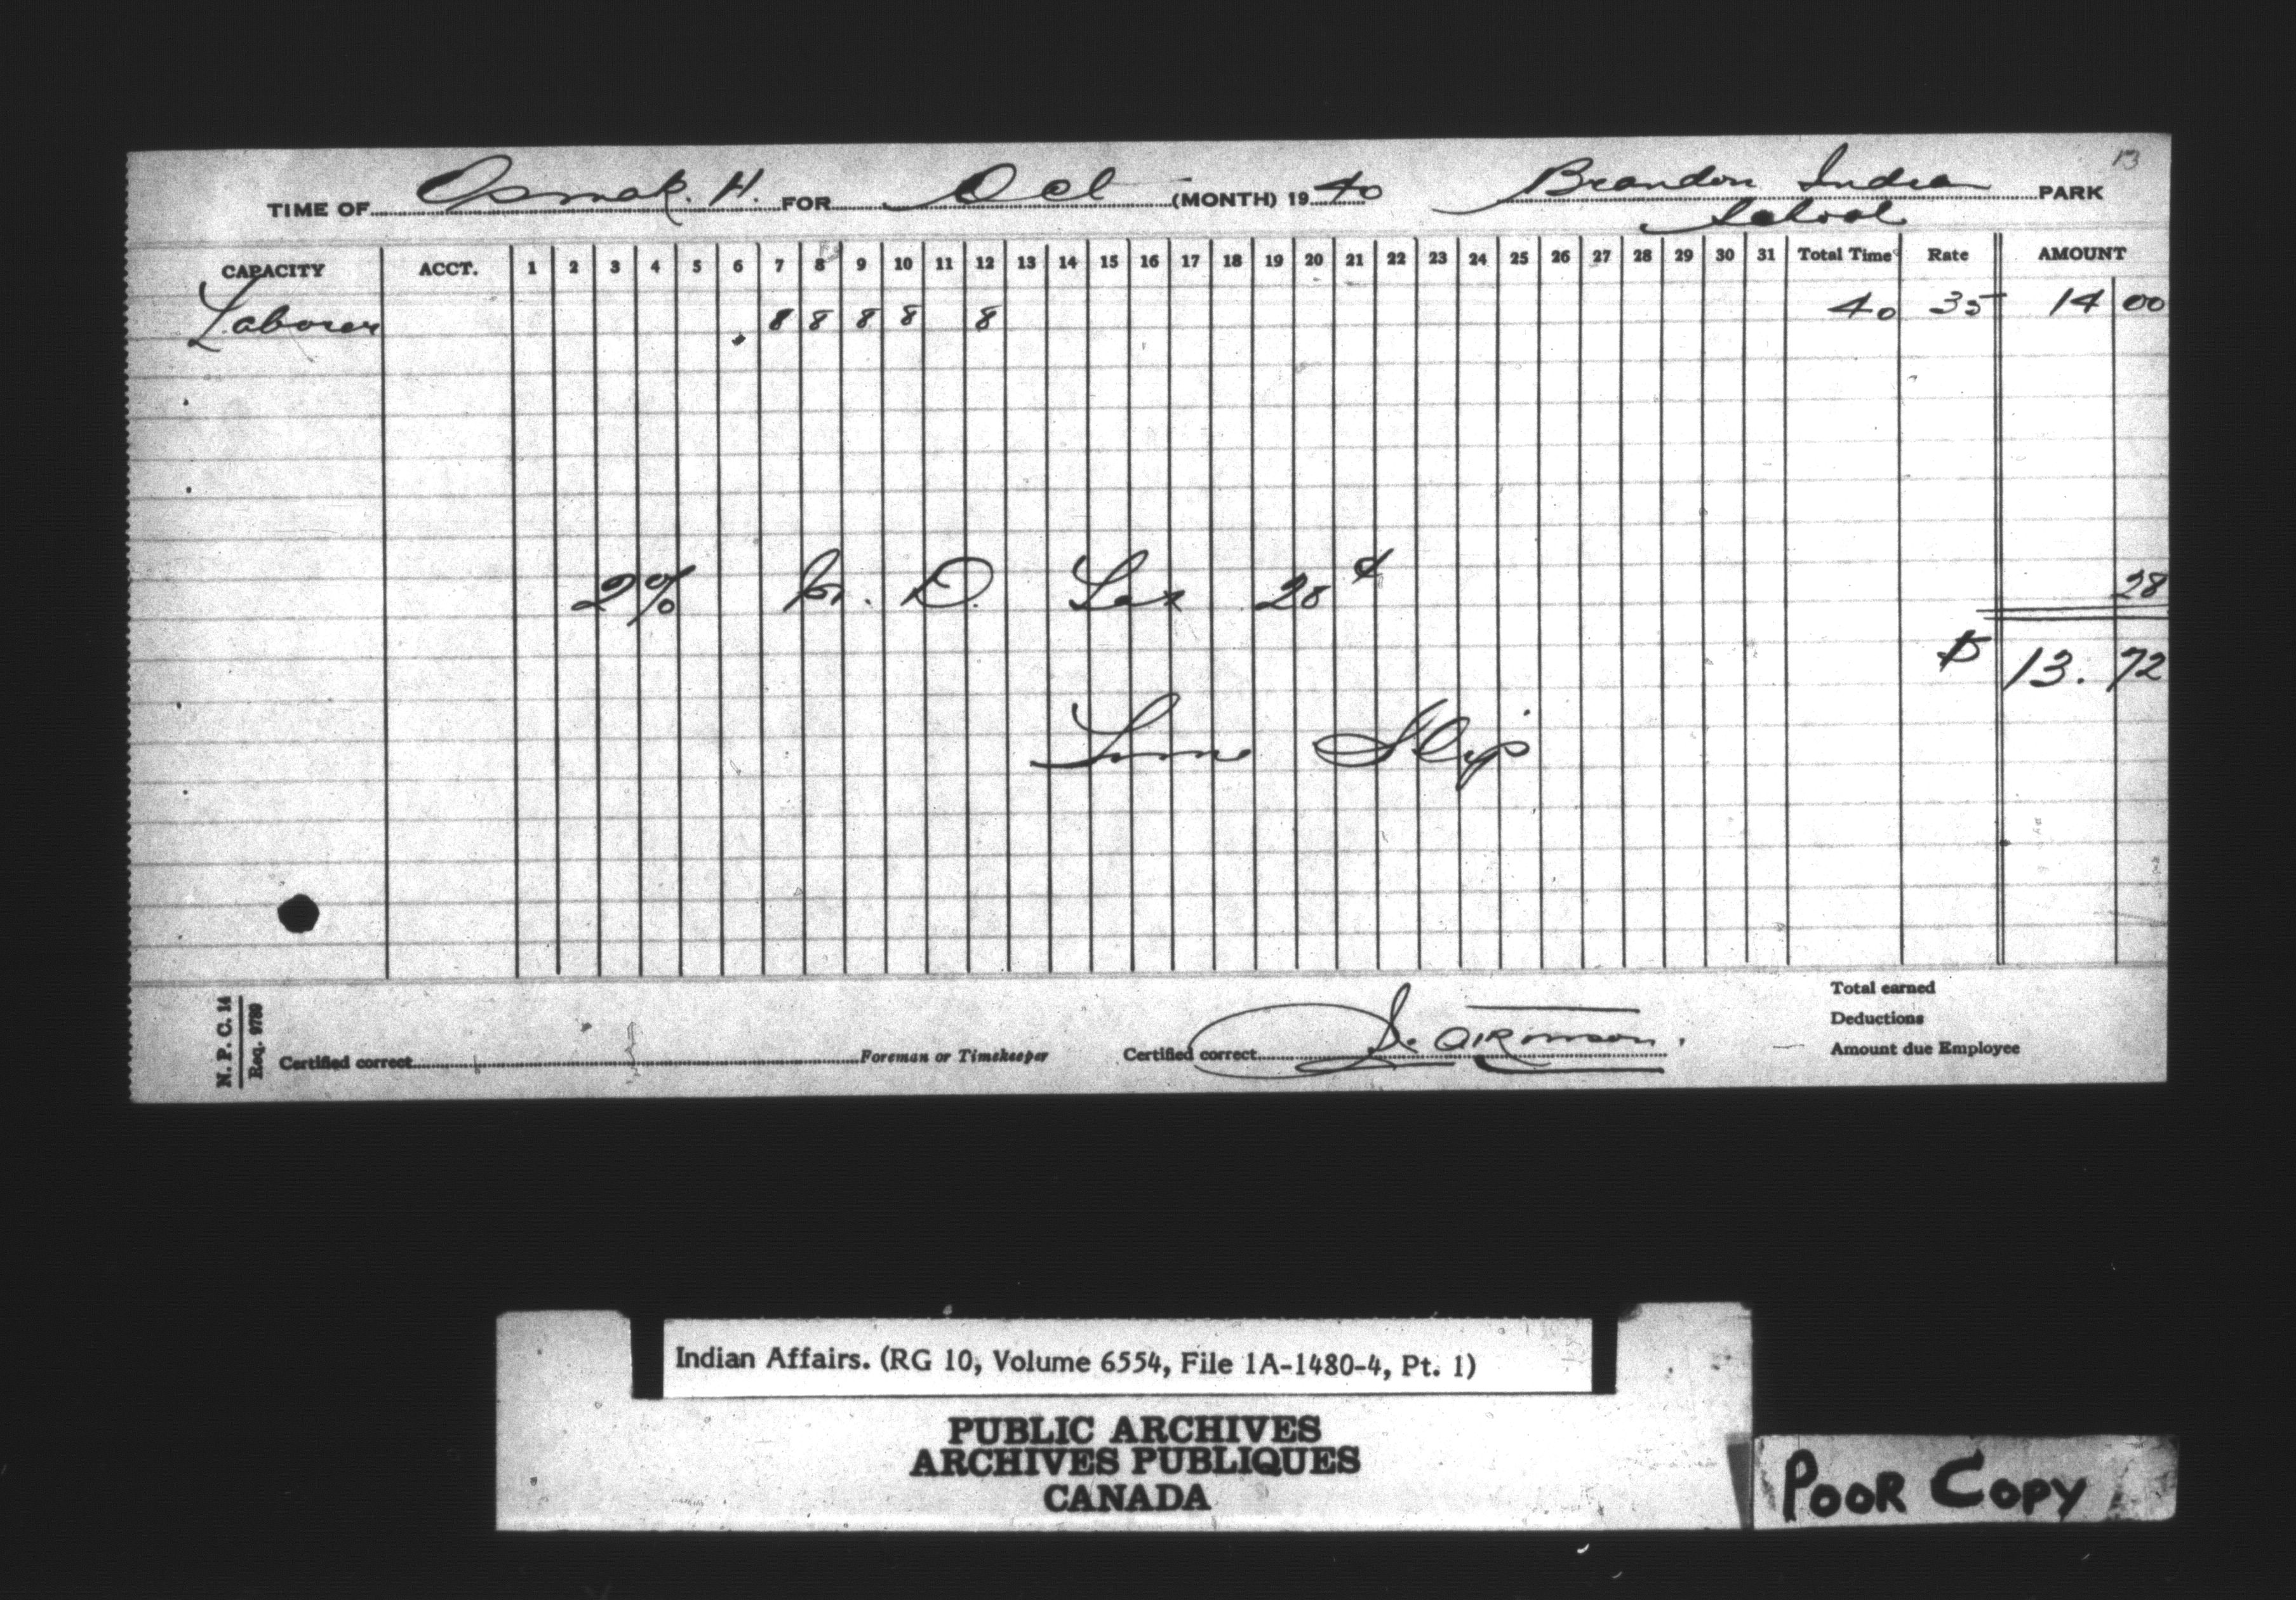 13
TIME OF Osmak. H. FOR Oct (MONTH) 1940 Brandon Indian PARK
School
CAPACITY ACCT. 1 2 3 4 5 6 7 8 9 10 11 12 13 14 15 16 17 18 19 20 21 22 23 24 25 26 27 28 29 30 31 Total Time Rate AMOUNT
Laborer 8 8 8 8 8 40 35 14 00
2% N. D. Tax 28¢ 28
$ 13. 72
Time Slip
Total earned
Deductions
Amount due Employee
Certified correct Foreman or Timekeeper Certified correct
N. P. C. 14
Req. 9789
Indian Affairs. (RG 10, Volume 6554, File 1A-1480-4, Pt. 1)
PUBLIC ARCHIVES
ARCHIVES PUBLIQUES
CANADA
POOR COPY